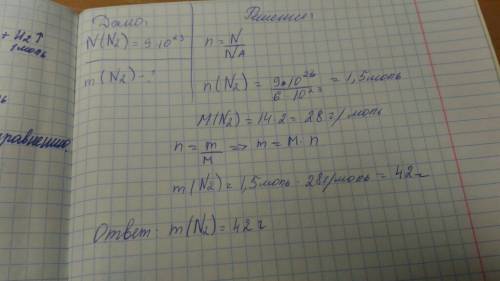 + H2↑
1моль
Дано:
N(N2) = 9·10²³
m(N2) - ?
Решение:
n = N/NA
n(N2) = 9·10²³ / 6·10²³ = 1,5моль
M(N2) = 14·2 = 28г/моль
n = m/M => m = M·n
m(N2) = 1,5моль·28г/моль = 42г
Ответ: m(N2) = 42г